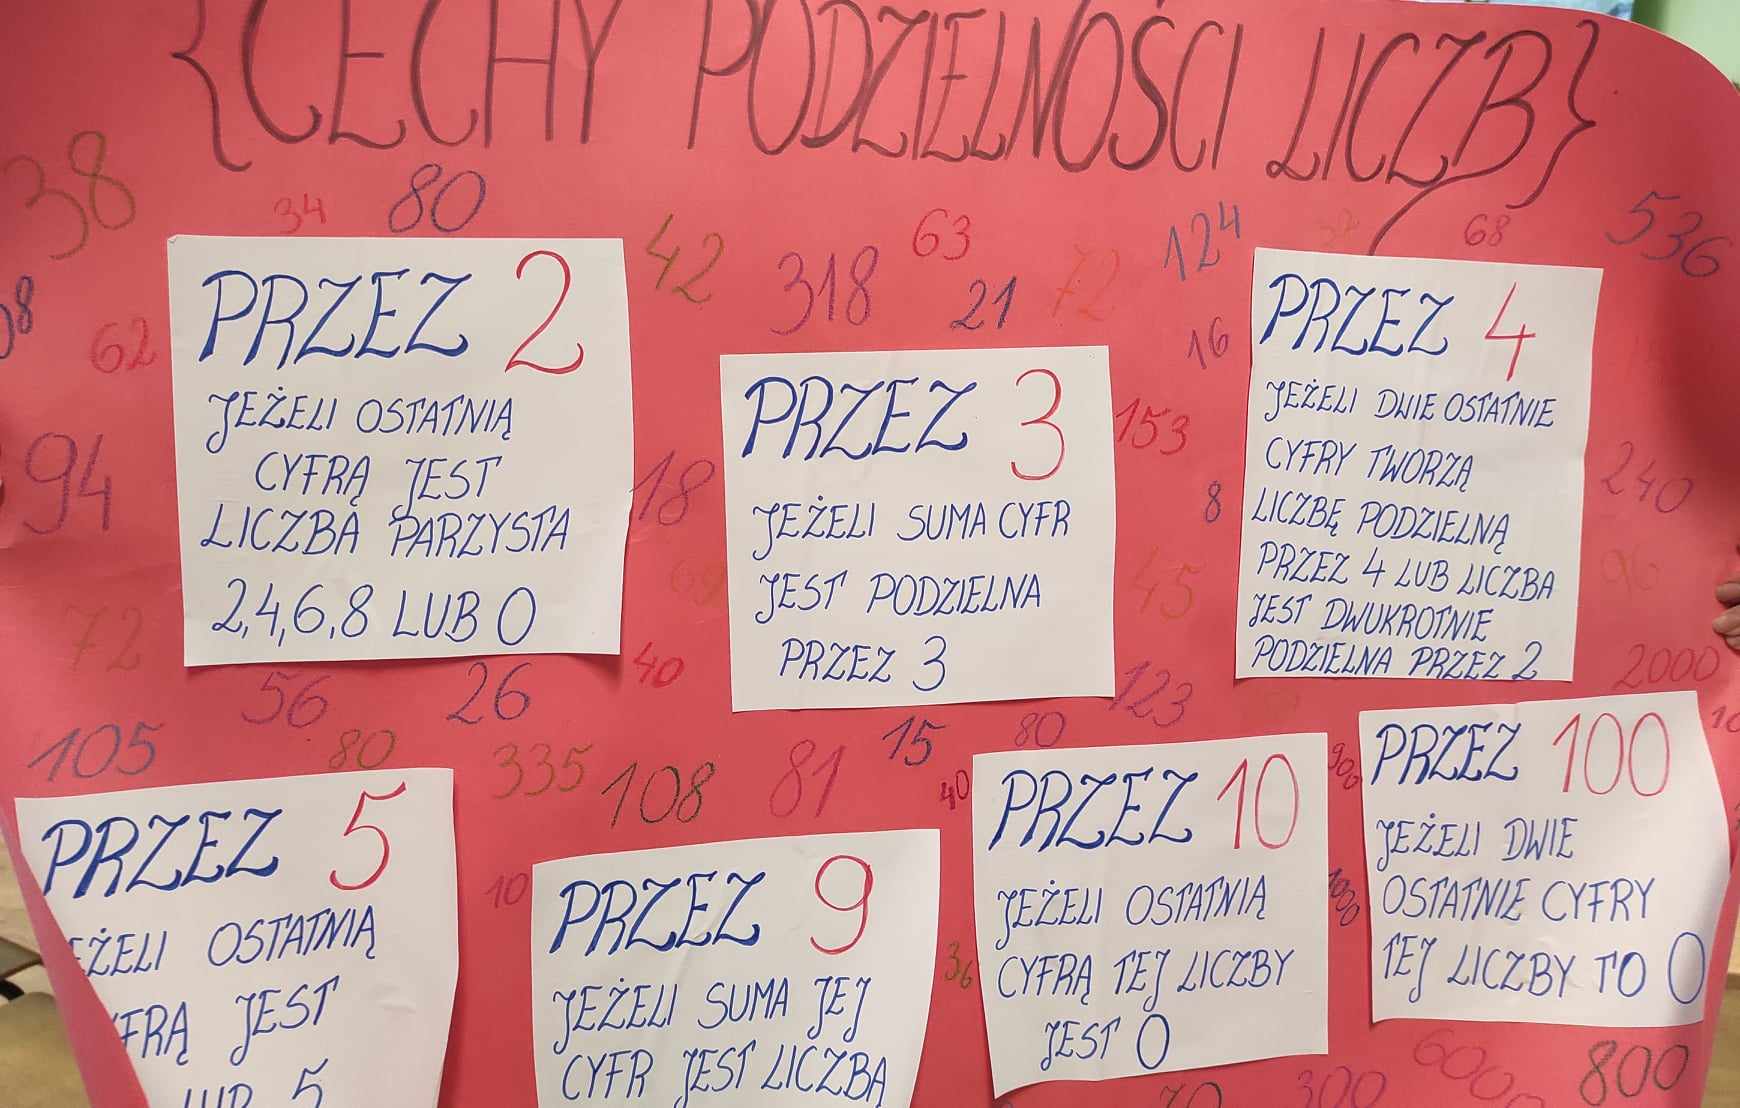 {CECHY PODZIELNOŚCI LICZB}
38
34
80
42
318
63
21
72
124
16
68
536
62
94
PRZEZ 2
JEŻELI OSTATNIĄ
CYFRĄ JEST
LICZBA PARZYSTA
2,4,6,8 LUB 0
18
69
40
PRZEZ 3
JEŻELI SUMA CYFR
JEST PODZIELNA
PRZEZ 3
153
8
45
123
PRZEZ 4
JEŻELI DWIE OSTATNIE
CYFRY TWORZĄ
LICZBĘ PODZIELNĄ
PRZEZ 4 LUB LICZBA
JEST DWUKROTNIE
PODZIELNA PRZEZ 2
240
96
2000
72
56
26
105
80
335
108
81
15
80
40
900
PRZEZ 5
EŻELI OSTATNIĄ
YFRĄ JEST
LUB 5
10
PRZEZ 9
JEŻELI SUMA JEJ
CYFR JEST LICZBĄ
36
PRZEZ 10
JEŻELI OSTATNIĄ
CYFRĄ TEJ LICZBY
JEST 0
1000
PRZEZ 100
JEŻELI DWIE
OSTATNIE CYFRY
TEJ LICZBY TO 0
70
300
600
800